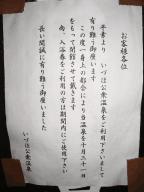 お客様各位
平素より、いづは公衆温泉をご利用下さいまして
有り難う御座います
この度一身上の都合により当温泉を十月三十一日
をもって閉館させて戴きます
尚、入浴券をご利用の方は期間内にご使用下さい
長い間誠に有り難う御座いました
いづは公衆温泉